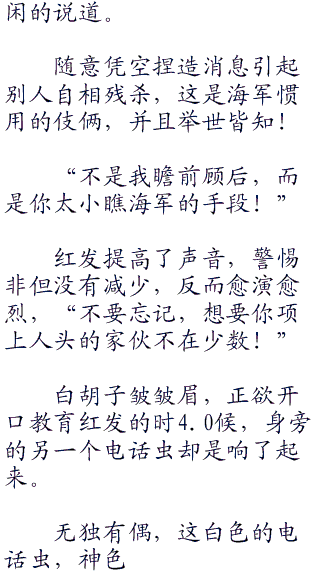 闲的说道。
随意凭空捏造消息引起
别人自相残杀，这是海军惯
用的伎俩，并且举世皆知！
“不是我瞻前顾后，而
是你太小瞧海军的手段！”
红发提高了声音，警惕
非但没有减少，反而愈演愈
烈，“不要忘记，想要你项
上人头的家伙不在少数！”
白胡子皱皱眉，正欲开
口教育红发的时4.0候，身旁
的另一个电话虫却是响了起
来。
无独有偶，这白色的电
话虫，神色